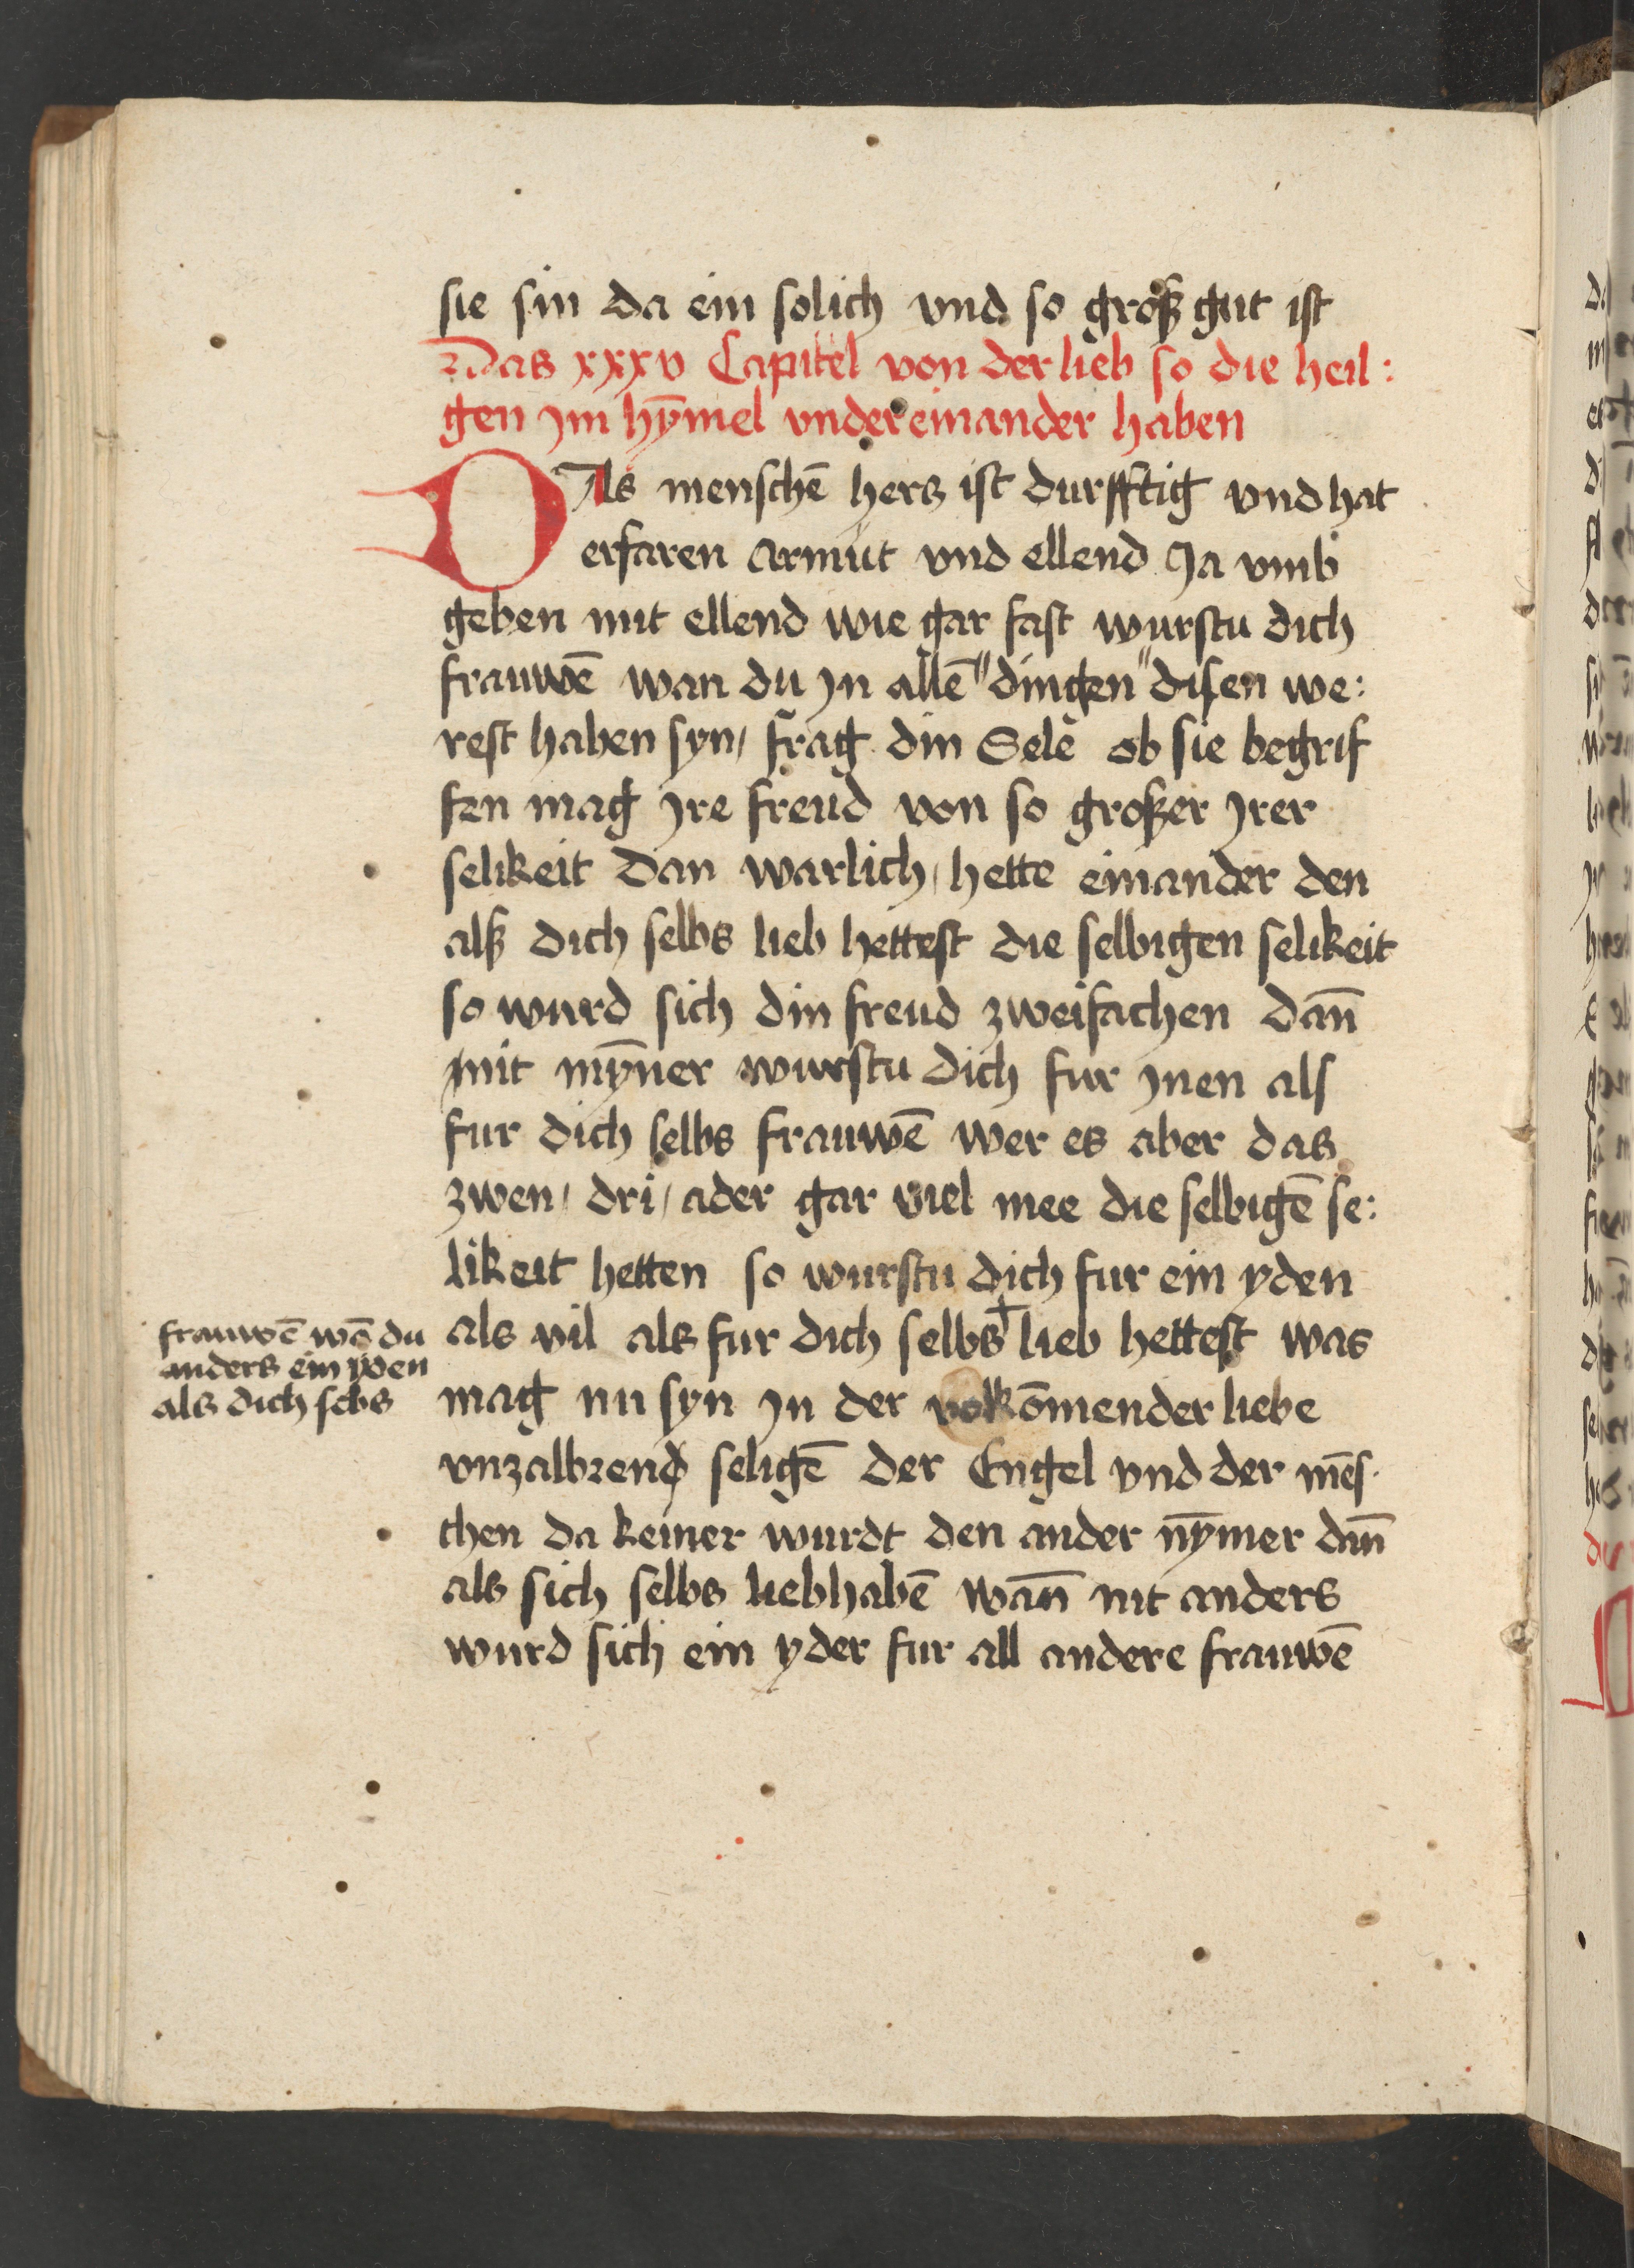 sie sin da ein solich vnd so groß gut ist
Das xxxv Capitel von der lieb so die heil:
gen jm hȳmel vndereinander haben
Als menschē hers ist durfftig vnd hat
erfaren armut vnd ellend Ja vmb
geben mit ellend wie gar fast wurstu dich
frauwē wan du jn allē "dingen" disen we:
rest haben syn/ frag din Sele ob sie begrif
fen mag jre freud von so großer jrer
selikeit Dan warlich/ hette ein ander den
alß dich selbs lieb hettest die selbigen selikeit
so wurd sich din freud zweifachen Dan̄
mit mȳner wurstu dich fur jnen als
fur dich selbs frauwē wer es aber das
zwen/ dri/ ader gar viel mee die selbigē se:
likeit hetten so wurstu dich fur ein yden
als vil als fur dich selbs + lieb hettest was
frauwē wō du
anders ein yden
als dich sebs
mag nu syn jn der volkōmender liebe
vnzalbrend seligē der Engel vnd der mēs
chen da keiner wurdt den ander nȳmer dan̄
als sich selbs liebhabē wan̄ nit anders
wurd sich ein yder fur all andere frauwē